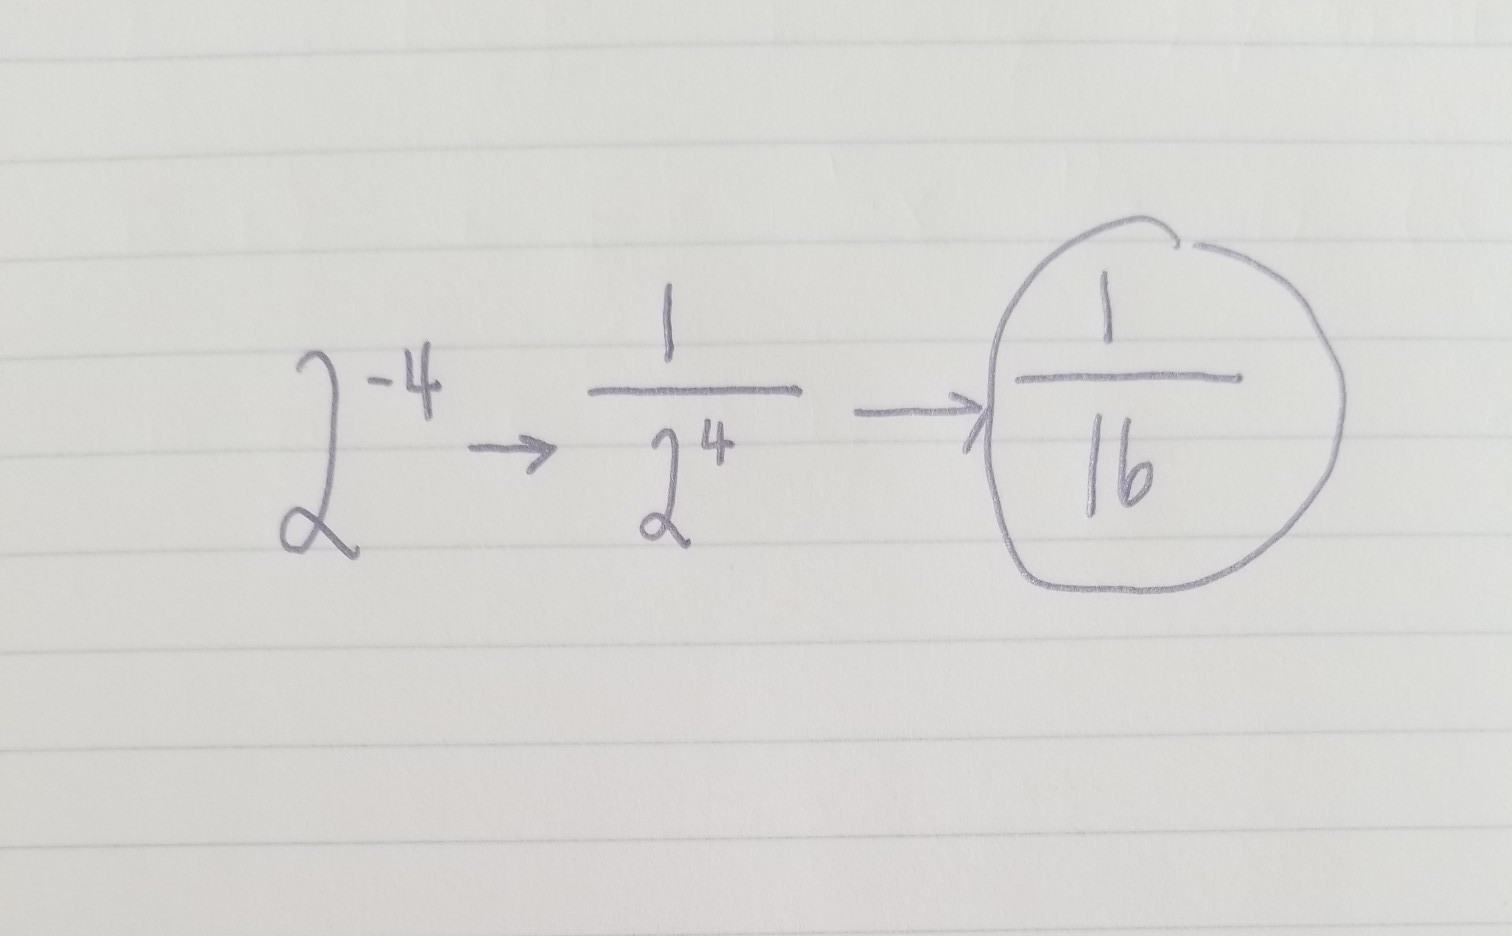 2⁻⁴ → 1/2⁴ → 1/16